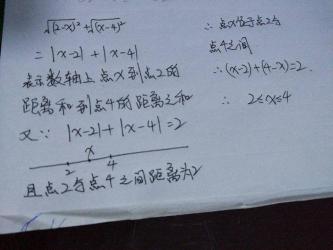 √(2-x)² + √(x-4)²
= |x-2| + |x-4|
表示数轴上点x到点2的
距离和到点4的距离之和
又∵ |x-2| + |x-4| = 2
x
2 4
且点2与点4之间距离为2
∴ 点x位于点2与
点4之间
∴ (x-2)+(4-x)=2
∴ 2≤x≤4